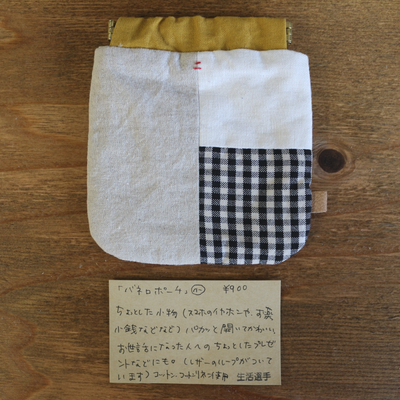 「バネ口ポーチ」 ¥900
ちょっとした小物 (スマホのイヤホンや、お薬
小銭などなど) パカッと開いてかわいい
お世話になった人へのちょっとしたプレゼ
ントなどにも。(レザーのループがついて
います) コットン、コットンリネンほか 生活選手